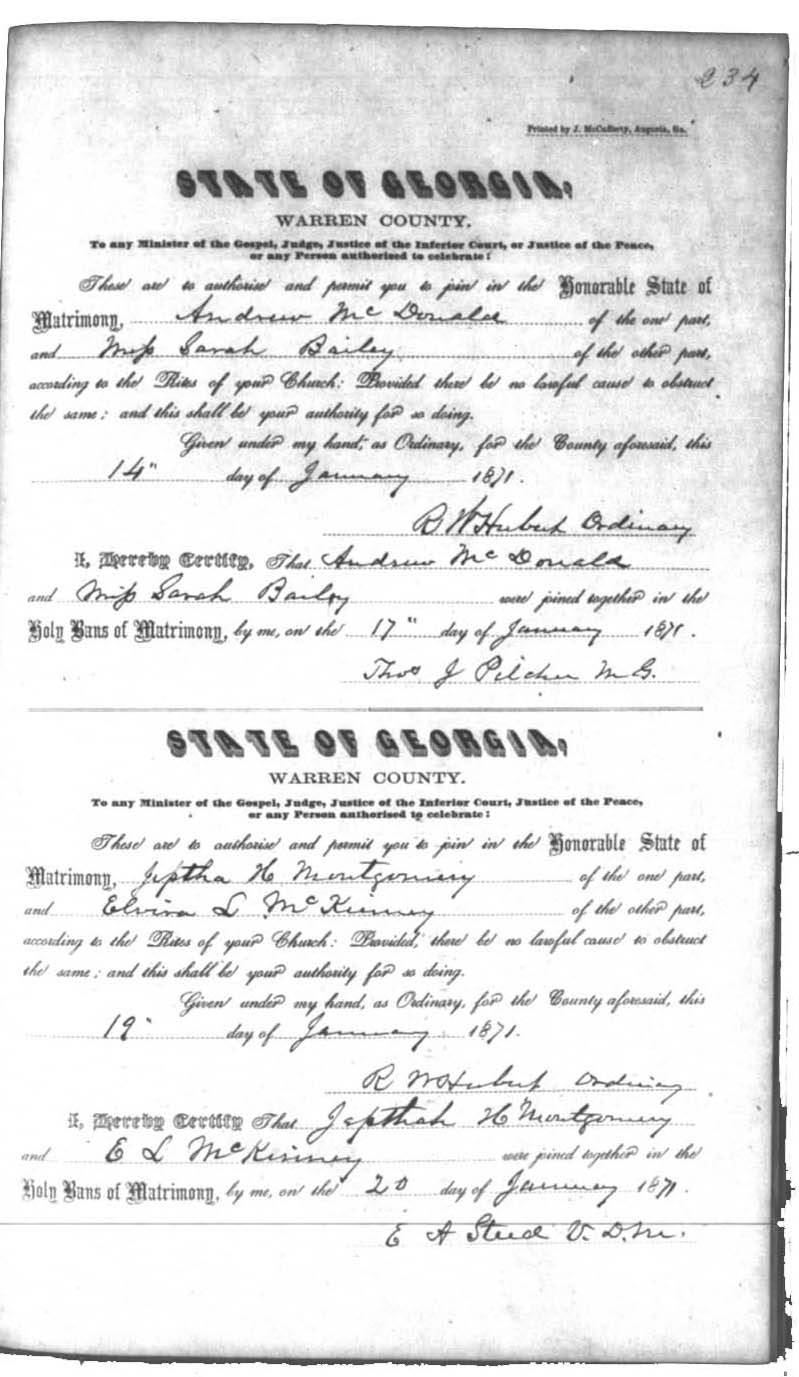 234
Printed by J. McCafferty, Augusta, Ga.
STATE OF GEORGIA,
WARREN COUNTY.
To any Minister of the Gospel, Judge, Justice of the Inferior Court, or Justice of the Peace,
or any Person authorised to celebrate:
These are to authorise and permit you to join in the Honorable State of
Matrimony, Andrew McDonald of the one part,
and Miss Sarah Bailey of the other part,
according to the Rites of your Church: Provided there be no lawful cause to obstruct
the same; and this shall be your authority for so doing.
Given under my hand, as Ordinary, for the County aforesaid, this
14" day of January 1871.
R W Hubert Ordinary
I, Hereby Certify, That Andrew McDonald
and Miss Sarah Bailey were joined together in the
Holy Bans of Matrimony, by me, on the 17" day of January 1871.
Thos J Pilcher M G.
STATE OF GEORGIA,
WARREN COUNTY.
To any Minister of the Gospel, Judge, Justice of the Inferior Court, Justice of the Peace,
or any Person authorised to celebrate:
These are to authorise and permit you to join in the Honorable State of
Matrimony, Jeptha H Montgomery of the one part,
and Elvira L McKinney of the other part,
according to the Rites of your Church: Provided, there be no lawful cause to obstruct
the same; and this shall be your authority for so doing.
Given under my hand, as Ordinary, for the County aforesaid, this
19" day of January 1871.
R W Hubert Ordinary
I, Hereby Certify That Jepthah H Montgomery
and E L McKinney were joined together in the
Holy Bans of Matrimony, by me, on the 20 day of January 1871.
E A Steed V. D. M.